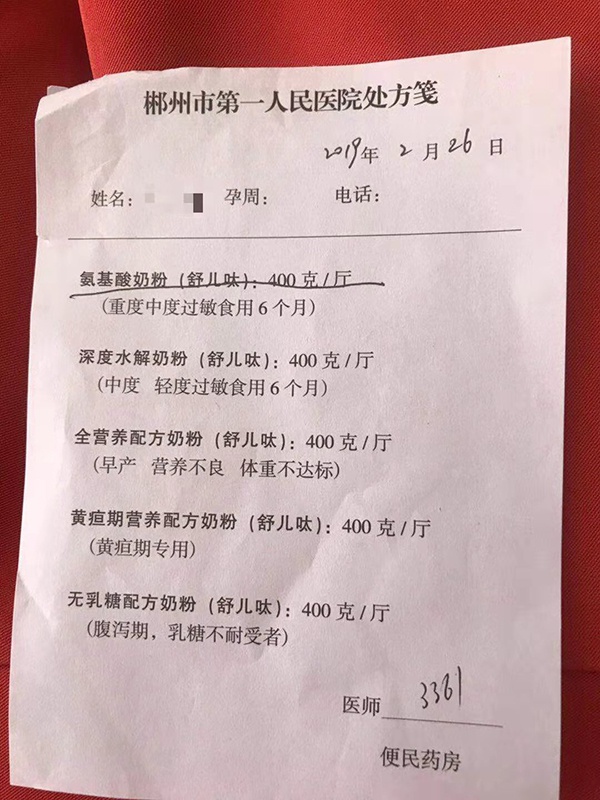 郴州市第一人民医院处方笺
2019年 2 月 26 日
姓名: 孕周: 电话:
氨基酸奶粉(舒儿呔): 400 克/厅
(重度中度过敏食用6个月)
深度水解奶粉(舒儿呔): 400 克/厅
(中度 轻度过敏食用6个月)
全营养配方奶粉(舒儿呔): 400 克/厅
(早产 营养不良 体重不达标)
黄疸期营养配方奶粉(舒儿呔): 400 克/厅
(黄疸期专用)
无乳糖配方奶粉(舒儿呔): 400 克/厅
(腹泻期, 乳糖不耐受者)
医师 3361
便民药房